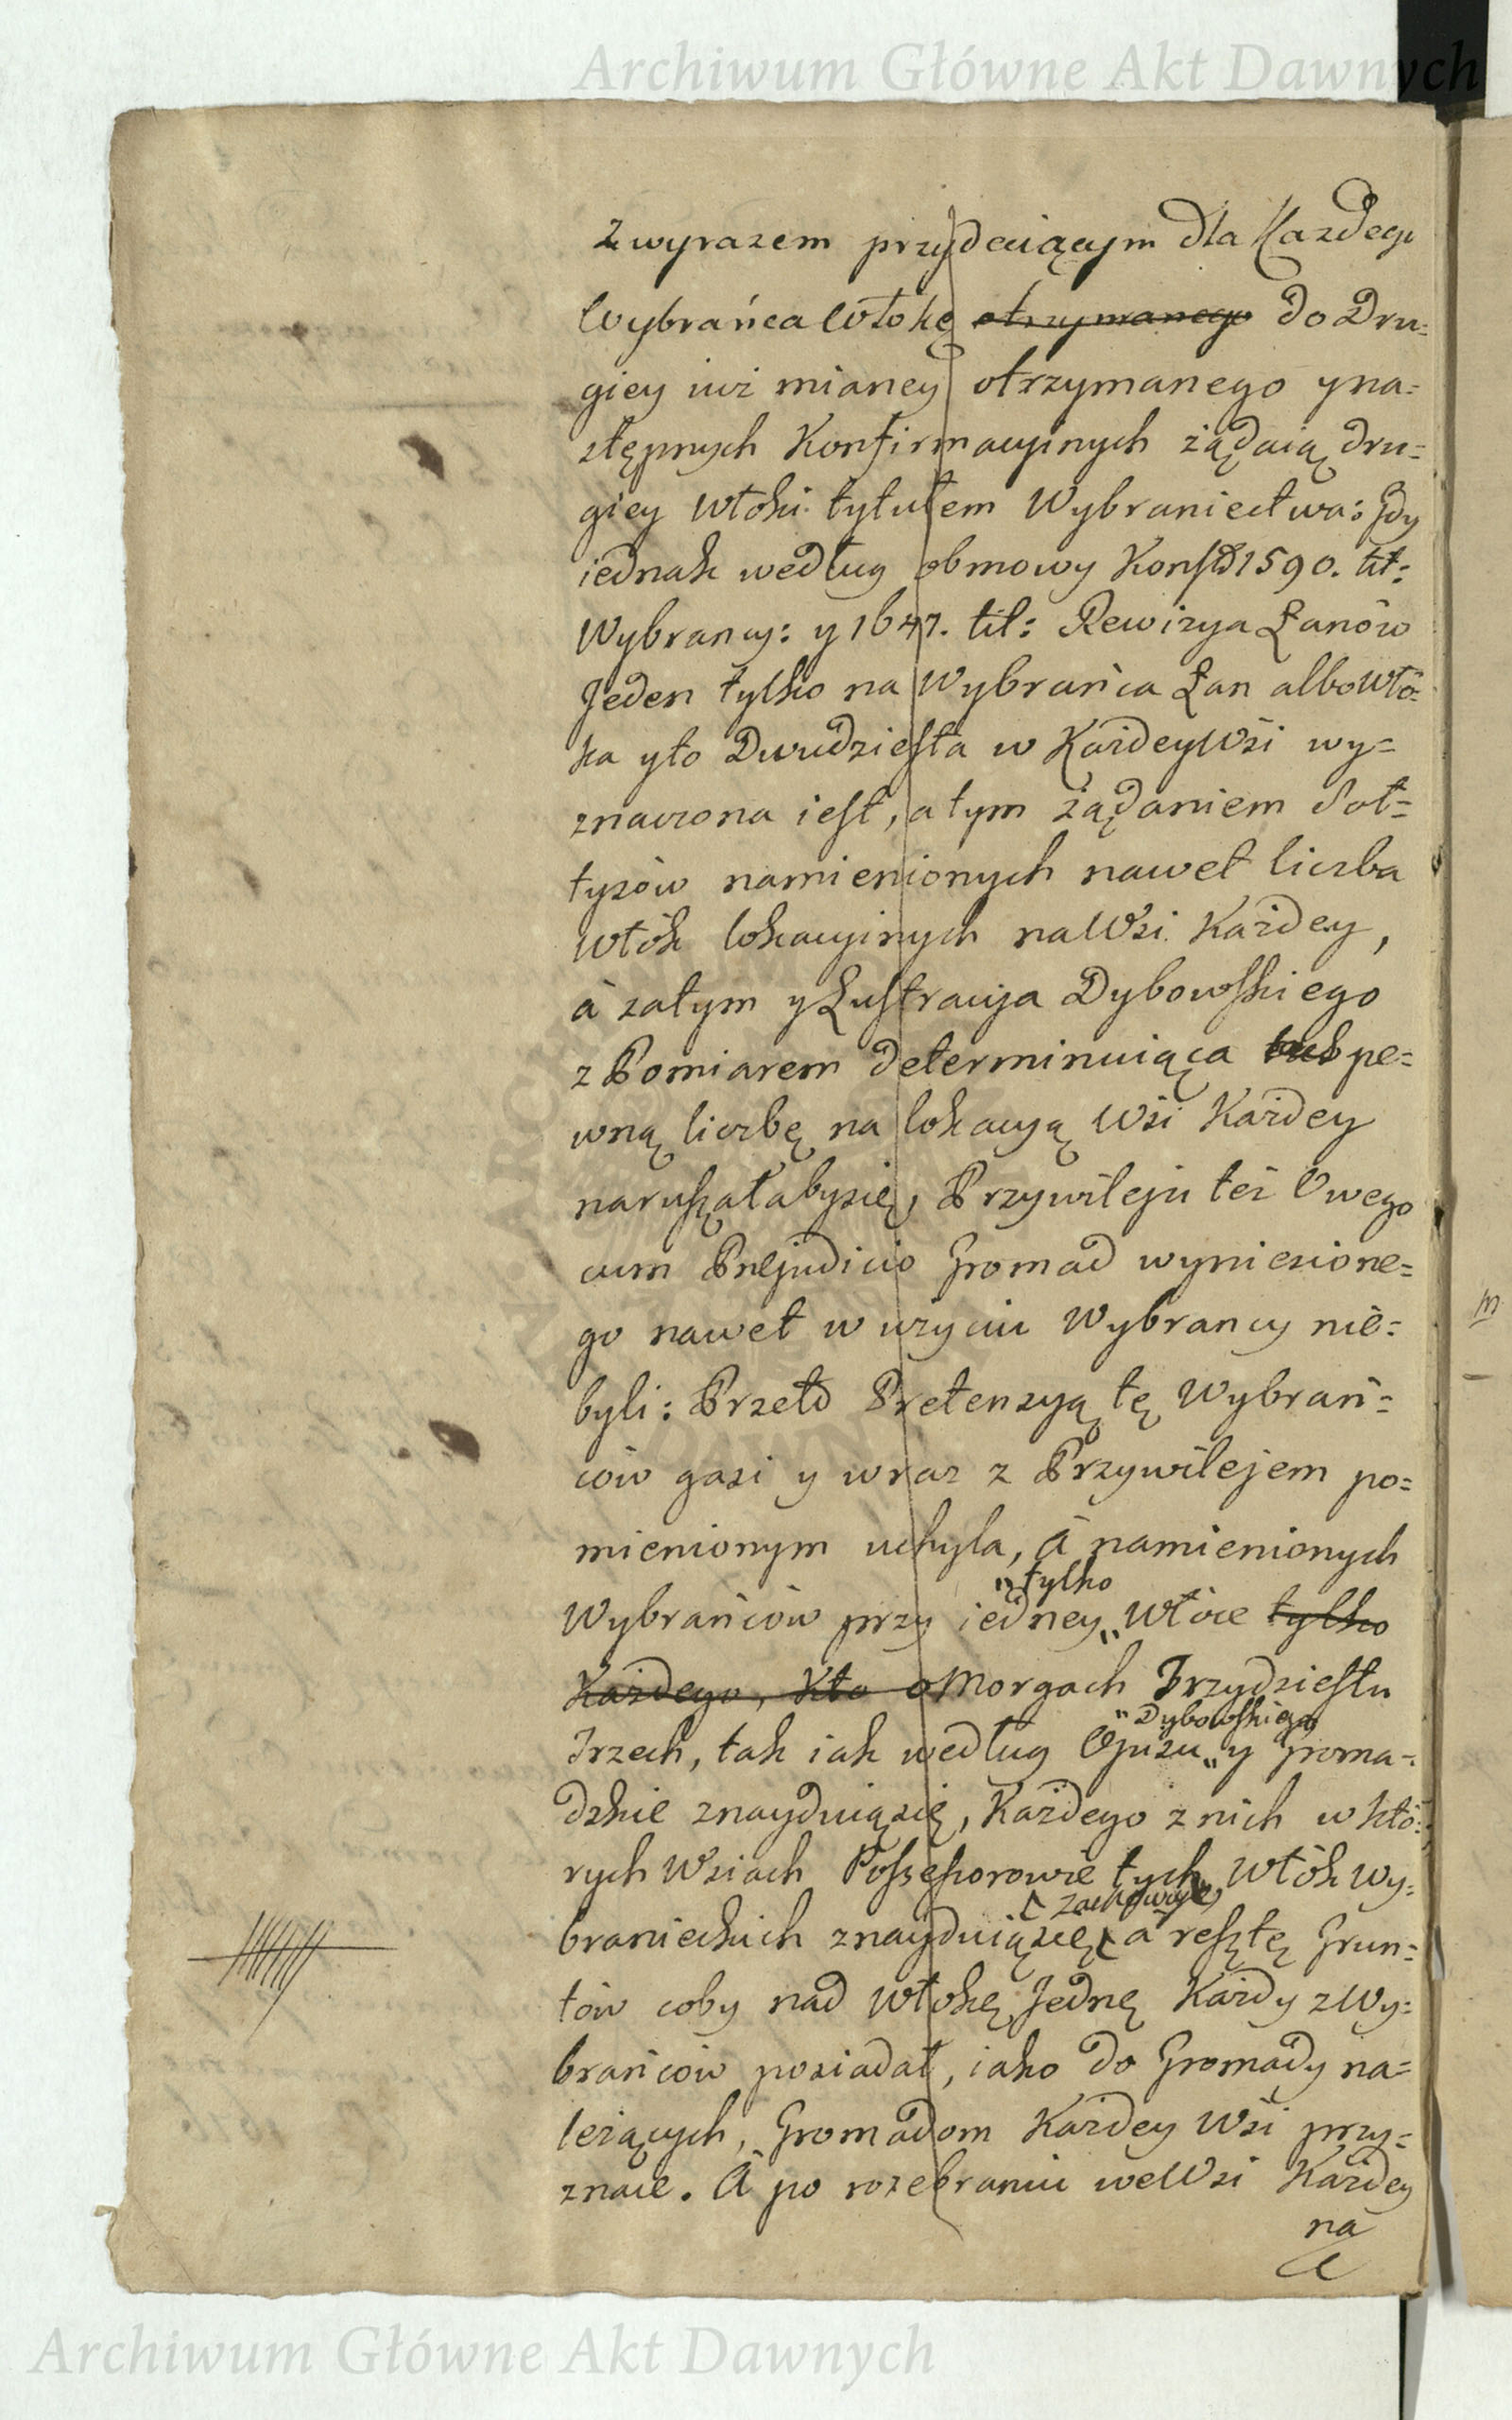 Archiwum Główne Akt Dawnych
z wyrazem przydaiącym dla Kazdego
Wybrańca Włokę otrzymanego do Dru=
giey iuż mianey otrzymanego y na=
stępnych Konfirmacyinych żądaią dru=
giey włoki tytułem Wybraniectwa: Gdy
iednak według obmowy Konst: 1590. tit:
Wybrancy: y 1647. tit: Rewizya Łanów
Jeden tylko na Wybrańca Łan albo Wło=
ka y to Dwudziesta w Każdey Wsi wy=
znaczona iest, a tym żądaniem Soł=
tysów namienionych nawet liczba
włók lokacyinych na Wsi Każdey,
à zatym y Lustracyja Dybowskiego
z Pomiarem determinuiąca pe=
wną liczbę na lokacyą Wsi Każdey
naruszałaby się, Przywileju też Owego
cum Prejudicio Gromad wyniesione=
go nawet w użyciu Wybrancy nie=
byli: Przeto Pretensyą tę Wybrań=
ców gasi y wraz z Przywilejem po=
mienionym uchyla, à namienionych
tylko
Wybrańców przy iedney Włóce tylko
Każdego, Kto o Morgach Trzydziestu
Dybowskiego
Trzech, tak iak według Opisu y Groma=
dzkie znayduią się, Każdego z nich w któ=
rych Wsiach Possessorowie tych Włók wy=
zachowuje,
branieckich znayduią się à resztę Grun=
tów coby nad Włokę Jednę Każdy z Wy=
brańców posiadał, iako do Gromady na=
leżących, Gromadom Każdey Wsi przy=
znaie. A po rozebraniu we Wsi Każdey
na
Archiwum Główne Akt Dawnych